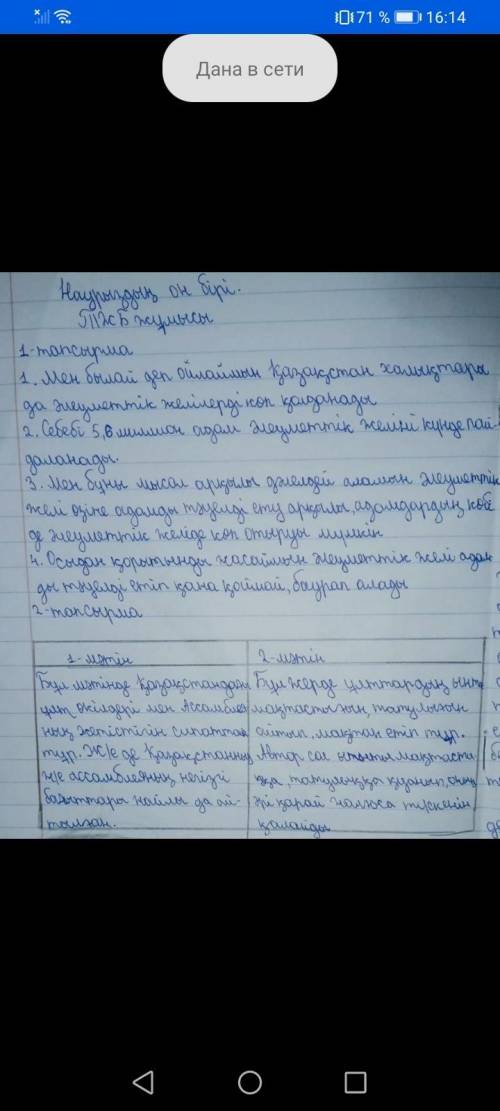 71 % 16:14
Дана в сети
Наурыздың он бірі.
БЖБ жұмысы
1-тапсырма
1. Мен былай деп ойлаймын Қазақстан халықтары
да әлеуметтік желілерді көп қолданады
2. Себебі 5,8 миллион адам әлеуметтік желіні күнде пай-
даланады.
3. Мен бұны мысал арқылы дәлелдей аламын әлеуметтік
желі өзіне адамды тәуелді ету арқылы, адамдардың көбі
де әлеуметтік желіде көп отыруы мүмкін
4. Осыдан қорытынды жасаймын әлеуметтік желі адам-
ды тәуелді етіп қана қоймай, баурап алады
2-тапсырма
1-мәтін
Бұл мәтінде Қазақстандағы
ұлт өкілдері мен Ассамблея
ның жетістігін сипаттап
тұр. Және де Қазақстанның
және ассамблеяның негізгі
бағыттары жайлы да ай-
тылған.
2-мәтін
Бұл жерде ұлттардың ынты
мақтастығын, татулығын
айтып, мақтан етіп тұр.
Автор сол ынтымақтасты
ққа, татулыққа қуанып, оның
әрі қарай жалғаса түскенін
қалайды